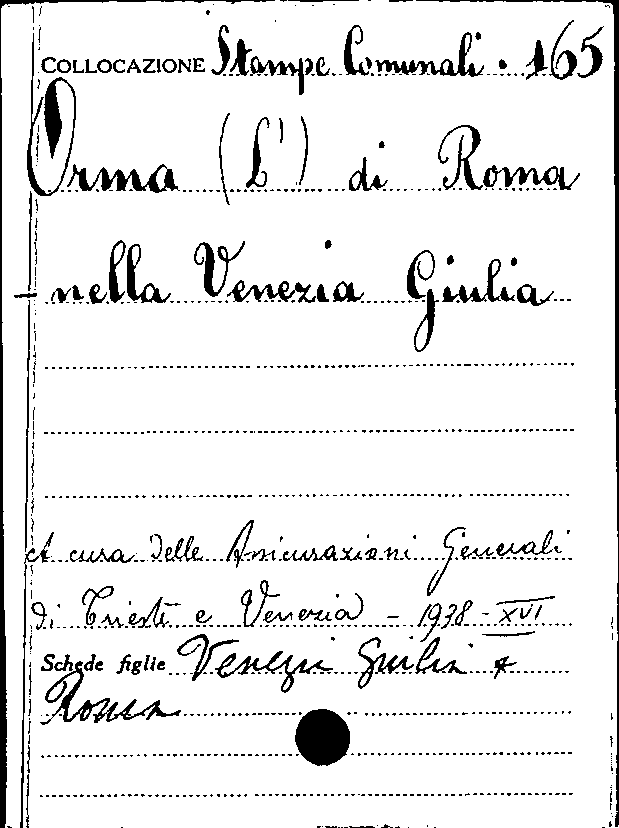 COLLOCAZIONE Stampe Comunali. 165
Orma (L') di Roma
nella Venezia Giulia
A cura delle Assicurazioni Generali
di Trieste e Venezia - 1938 - XVI
Schede figlie Venezia Giulia +
Roma